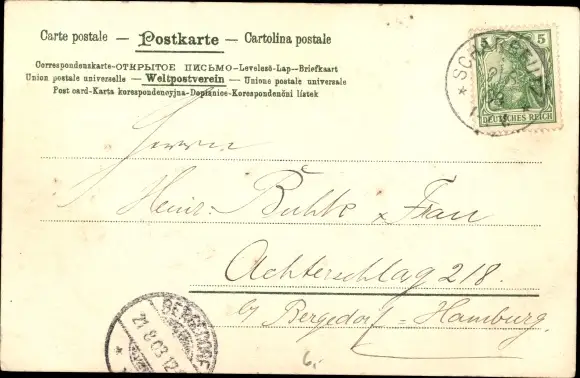 Carte postale — Postkarte — Cartolina postale
Correspondenskarte-ОТКРЫТОЕ ПИСЬМО-Levelező-Lap-Briefkaart
Union postale universelle — Weltpostverein — Unione postale universale
Post card-Karta korespondencyjna-Dopisnice-Korespondenční lístek
5 5
DEUTSCHES REICH
Herrn
Heinr. Buhk & Frau
Achterschlag 218.
by Bergedorf = Hamburg.
BERGEDORF
21 8 03 12
6.